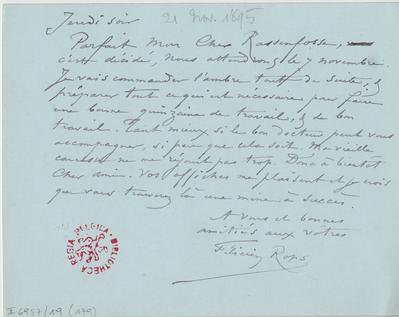 Jeudi soir 21 Nov. 1895
Parfait Mon Cher Rassenfosse,
c'est décidé, nous attendrons le 7 novembre.
Je vais commander l'ambre tout de suite, &
préparer tout ce qui est nécessaire pour faire
une bonne quinzaine de travail, & de bon
travail. Tant mieux si le bon docteur peut vous
accompagner, si peu que cela soit. Ma vieille
ne me réjouit pas trop. Donc à bientôt
Cher ami. Vos affiches me plaisent et je crois
que vous trouverez là une mine à succès.
A vous et bonnes
amitiés aux vôtres
Félicien Rops
BIBLIOTHECA REGIA BELGICA
II 6957/19 (179)